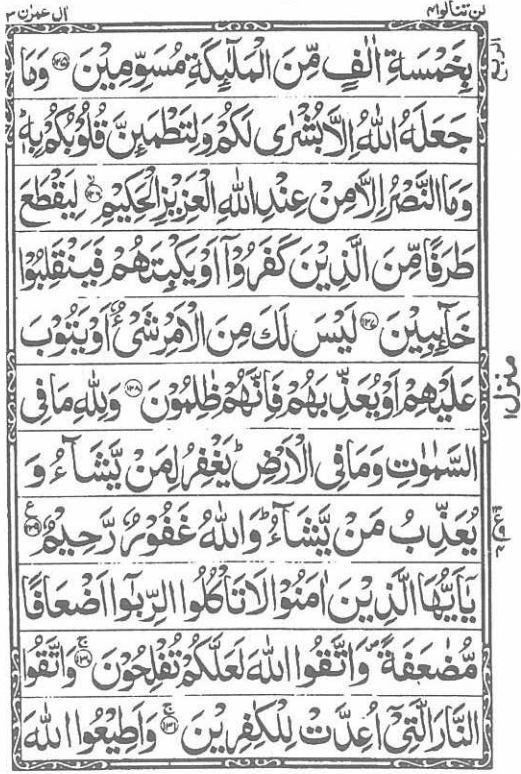 لن تنالوا ٤ اٰل عمرٰن ٣
بِخَمْسَةِ اٰلٰفٍ مِّنَ الْمَلٰٓئِكَةِ مُسَوِّمِيْنَ ﴿۱۲۵﴾ وَمَا
جَعَلَهُ اللّٰهُ اِلَّا بُشْرٰى لَكُمْ وَلِتَطْمَئِنَّ قُلُوْبُكُمْ بِهٖ ؕ
وَمَا النَّصْرُ اِلَّا مِنْ عِنْدِ اللّٰهِ الْعَزِيْزِ الْحَكِيْمِ ۙ﴿۱۲۶﴾ لِيَقْطَعَ
طَرَفًا مِّنَ الَّذِيْنَ كَفَرُوْۤا اَوْ يَكْبِتَهُمْ فَيَنْقَلِبُوْا
خَآئِبِيْنَ ﴿۱۲۷﴾ لَيْسَ لَكَ مِنَ الْاَمْرِ شَىْءٌ اَوْ يَتُوْبَ
عَلَيْهِمْ اَوْ يُعَذِّبَهُمْ فَاِنَّهُمْ ظٰلِمُوْنَ ﴿۱۲۸﴾ وَلِلّٰهِ مَا فِى
السَّمٰوٰتِ وَمَا فِى الْاَرْضِ ؕ يَغْفِرُ لِمَنْ يَّشَآءُ وَ
يُعَذِّبُ مَنْ يَّشَآءُ ؕ وَاللّٰهُ غَفُوْرٌ رَّحِيْمٌ ﴿۱۲۹﴾ ع
يٰۤاَيُّهَا الَّذِيْنَ اٰمَنُوْا لَا تَاْكُلُوا الرِّبٰٓوا اَضْعَافًا
مُّضٰعَفَةً ۪ وَاتَّقُوا اللّٰهَ لَعَلَّكُمْ تُفْلِحُوْنَ ۚ﴿۱۳۰﴾ وَاتَّقُوا
النَّارَ الَّتِىْۤ اُعِدَّتْ لِلْكٰفِرِيْنَ ۚ﴿۱۳۱﴾ وَاَطِيْعُوا اللّٰهَ
الربع
منزل ١